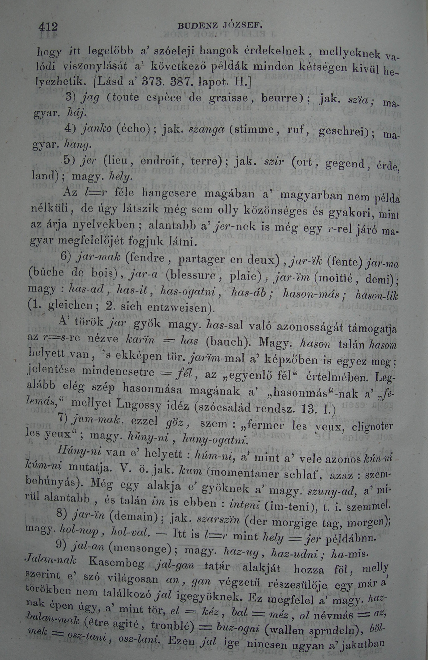 412 BUDENZ JÓZSEF.
hogy itt legelőbb a' szóeleji hangok érdekelnek, mellyeknek va-
lódi viszonylását a' következő példák minden kétségen kivül he-
lyezhetik. [Lásd a' 373. 387. lapot. II.]
3) jag (toute espèce de graisse, beurre); jak. szïa; ma-
gyar. háj.
4) janko (écho); jak. szanga (stimme, ruf, geschrei); ma-
gyar. hang.
5) jer (lieu, endroit, terre); jak. szir (ort, gegend, érde,
land); magy. hely.
Az l=r féle hangcsere magában a' magyarban nem példa
nélküli, de úgy látszik még sem olly közönséges és gyakori, mint
az árja nyelvekben; alantabb a' jer-nek is még egy r-rel járó ma-
gyar megfelelőjét fogjuk látni.
6) jar-mak (fendre, partager en deux), jar-ïk (fente) jar-ma
(bûche de bois), jar-a (blessure, plaie), jar-ïm (moitié, demi);
magy: has-ad, has-ít, has-ogatni, has-áb; hason-más; hason-lík
(1. gleichen; 2. sich entzweisen).
A' török jar gyök magy. has-sal való azonosságát támogatja
az r=s-re nézve karïn = has (bauch). Magy. hason talán hasom
helyett van, 's ekképen tör. jarïm-mal a' képzőben is egyez meg;
jelentése mindenesetre = fél, az „egyenlő fél" értelmében. Leg-
alább elég szép hasonmása magának a' „hasonmás"-nak a' „fe-
lemás," mellyet Lugossy idéz (szócsalád rendsz. 13. l.)
7) jum-mak. ezzel göz, szem: „fermer les yeux, clignoter
les yeux"; magy. húny-ni, huny-ogatni.
Húny-ni van e' helyett: húm-ni, a' mint a' vele azonos kún-ni
kúm-ni mutatja. V. ö. jak. kum (momentaner schlaf, azaz: szem-
behúnyás). Még egy alakja e' gyöknek a' magy. szuny-ad, a' mi-
rül alantabb, és talán im is ebben: inteni (im-teni), t. i. szemmel.
8) jar-ïn (demain); jak. szarszïn (der morgige tag, morgen);
magy. hol-nap, hol-val. — Itt is l=r mint hely = jer példábnn.
9) jal-an (mensonge); magy. haz-ug, haz-udni; ha-mis.
Jalan-nak Kasembeg jal-gan tatár alakját hozza föl, melly
szerint e' szó világosan an, gan végzetű részesülője egy már a'
törökben nem találkozó jal igegyöknek. Ez megfelel a' magy. haz-
nak épen úgy, a' mint tör, el = kéz, bal = méz, ol névmás = az,
bulan-mak (être agité, troublé) = buz-ogni (wallen sprudeln), böl-
mek = osz-tani, osz-lani. Ezen jal ige nincsen ugyan a' jakutban